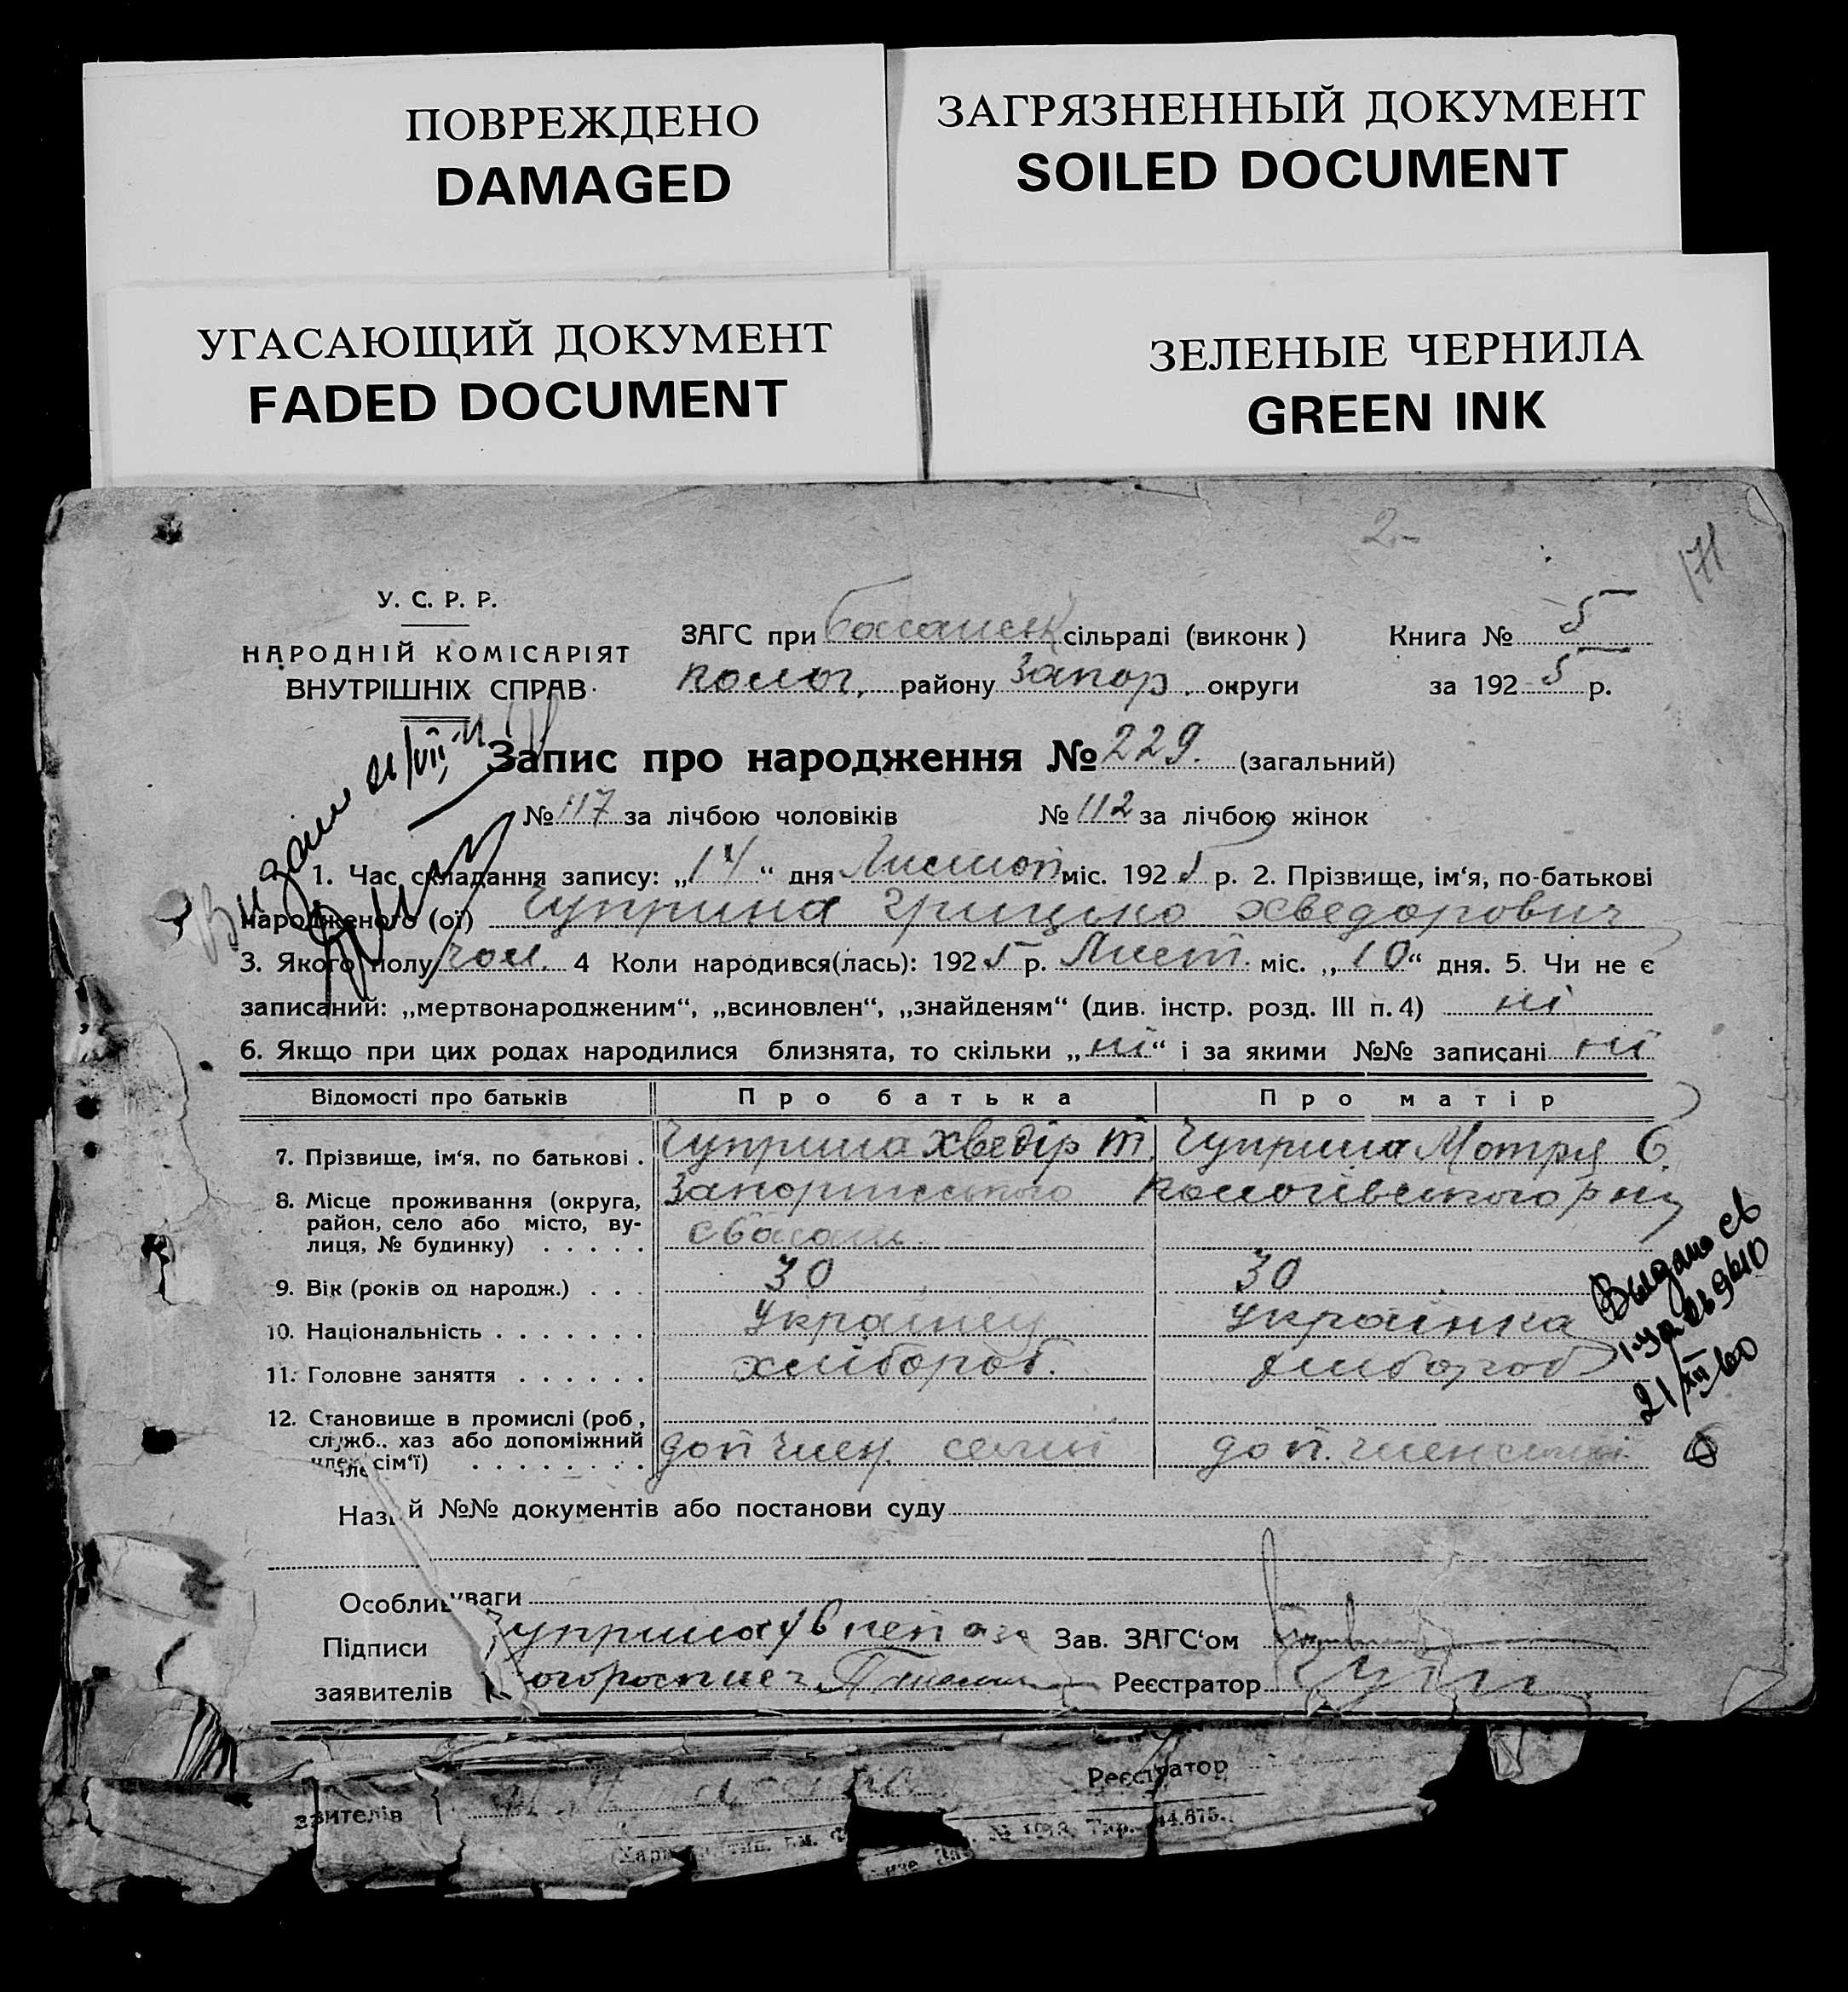 ПОВРЕЖДЕНО
DAMAGED
ЗАГРЯЗНЕННЫЙ ДОКУМЕНТ
SOILED DOCUMENT
УГАСАЮЩИЙ ДОКУМЕНТ
FADED DOCUMENT
ЗЕЛЕНЫЕ ЧЕРНИЛА
GREEN INK
2-
171
У. С. Р. Р.
НАРОДНІЙ КОМІСАРІЯТ
ВНУТРІШНІХ СПРАВ
ЗАГС при Басанськ сільраді (виконк) Книга № 5
полог, району Запор. округи за 1925 р.
Запис про народження № 229. (загальний)
№ 117 за лічбою чоловіків № 112 за лічбою жінок
1. Час складання запису: „14“ дня Листоп міс. 1925 р. 2. Прізвище, ім‘я, по-батькові
народженого (ої) Чуприна Грицько Хведорович
3. Якого полу чол. 4 Коли народився(лась): 1925 р. Лист. міс. „10“ дня. 5. Чи не є
записаний: „мертвонародженим“, „всиновлен“, „знайденям“ (див. інстр. розд. III п. 4) ні
6. Якщо при цих родах народилися близнята, то скільки „ні“ і за якими №№ записані ні
Відомості про батьків Про батька Про матір
7. Прізвище, ім‘я, по батькові . Чуприна Хведір Т. Чуприна Мотря С.
8. Місце проживання (округа, Запоріжського Пологівського р ну
район, село або місто, ву- с Басань
лиця, № будинку) . . . . .
9. Вік (років од народж.) . . . 30 30
10. Національність . . . . . . . Українец Українка
11. Головне заняття . . . . . . хлібороб. хлібороб
12. Становище в промислі (роб,
служб., хаз або допоміжний доп член. семьї доп. член семьї
член сім‘ї) . . . . . . . .
Видано св
21/XII 60
Наз й №№ документів або постанови суду
Особливі уваги
Підписи Чуприна Зав. ЗАГС‘ом
заявителів Реєстратор
Реєстратор
явителів